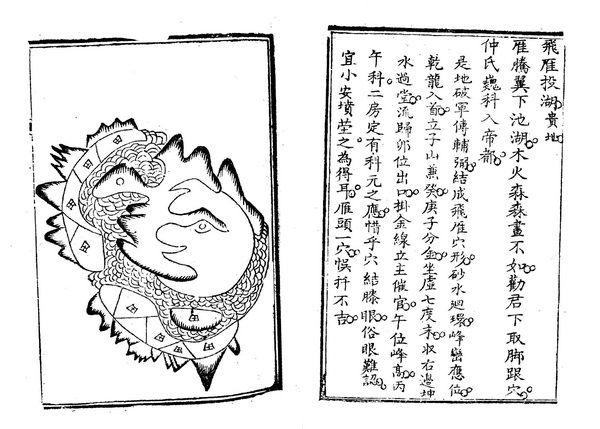 飛雁投湖貴地
雁騰翼下池湖木火森森畫不如勸君下取脚跟穴
仲氏巍科入帝都
是地破軍傳輔弼結成飛雁穴形砂水廻環峰巒應位
乾龍入首立子山兼癸庚子分金坐虛七度未收右邊坤
水過堂流歸卯位出口掛金線立主催官午位峰高丙
午科二房定有科元之應惜乎穴結膝眼俗眼難認
宜小安墳塋之為得耳雁頭一穴悞扦不吉